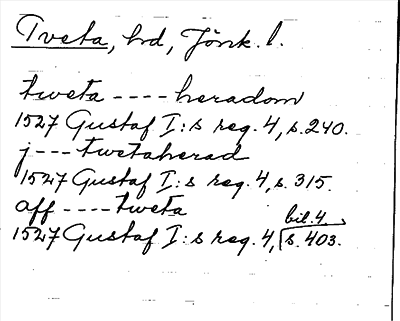 Tveta, hrd, Jönk. l.
tweta ---- heradom
1527 Gustaf I:s reg. 4, s. 240.
j --- twetaherad
1527 Gustaf I:s reg. 4, s. 315.
aff ---- tweta
bil. 4.
1527 Gustaf I:s reg. 4, s. 403.